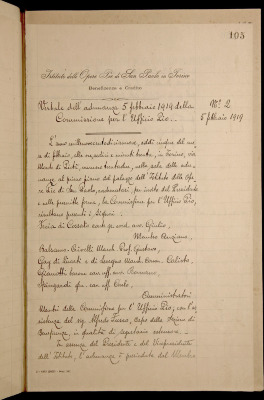 105
Istituto delle Opere Pie di San Paolo in Torino
Beneficenza e Credito
Verbale dell'adunanza 5 febbraio 1919 della
Commissione per l'Ufficio Pio.
N.° 2
5 febbraio 1919
L'anno millenovecentodiciannove, addì cinque del me-
se di febbraio, alle ore dieci e minuti trenta, in Torino, via
Monte di Pietà, numero trentadue, nella sala delle adu-
nanze al primo piano del palazzo dell'Istituto delle Ope-
re Pie di San Paolo, radunatasi, per invito del Presidente
e nelle prescritte forme, la Commissione per l'Ufficio Pio,
risultano presenti i Signori:
di Cossato conte gr. cord. avv.
Membro Anziano,
Balsamo-Crivelli March. Prof. Gustavo,
Gay di Quarti e di Lesegno March. Comm. Calisto,
Gianotti barone cav. uff. avv. Romano,
cav. uff. avv.
Amministratori
Membri della Commissione per l'Ufficio Pio, con l'as-
sistenza del sig. Alfredo Capo della Sezione di
Beneficenza, in qualità di segretario
In assenza del Presidente e del Vicepresidente
dell'Istituto, l'adunanza è presieduta dal Membro